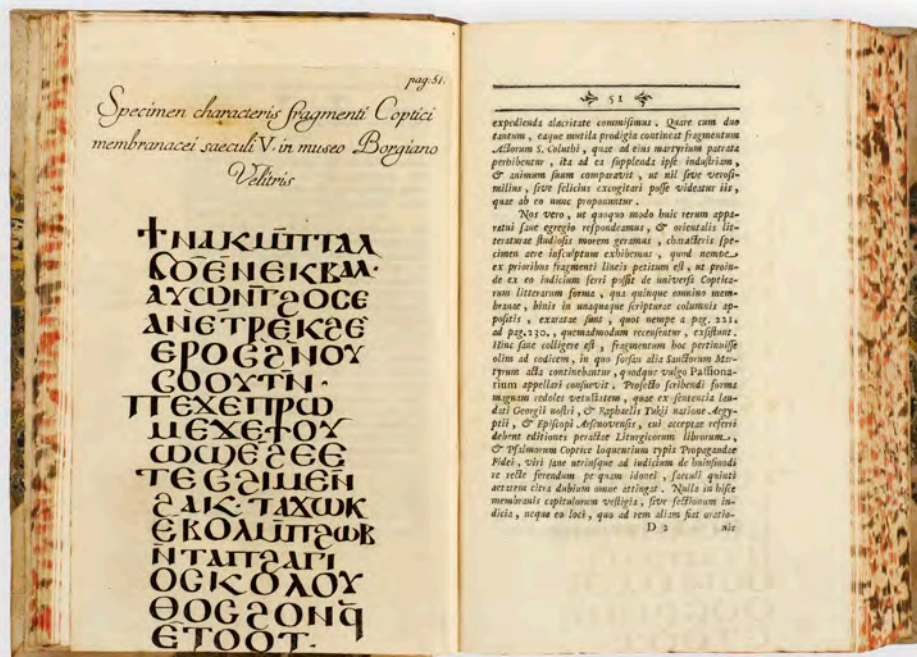 pag: 51.
Specimen characteris fragmenti Coptici
membranacei saeculi V. in museo Borgiano
Velitris
ϯⲛⲁⲕⲙ̅ⲡⲧⲁⲗ
ϭⲟⲉⲛⲉⲕⲃⲁⲗ·
ⲁⲩⲱⲛⲅ̅ϩⲟⲥⲉ
ⲁⲛⲉⲧⲣⲉⲕϩⲉ
ⲉⲣⲟⲥϩⲛ̅ⲟⲩ
ⲥⲟⲟⲩⲧⲛ̅·
ⲡⲉϫⲉⲡⲣⲱ
ⲙⲉϫⲉϯⲟⲩ
ⲱϣⲉϩⲉⲉ
ⲧⲉⲥϩⲓⲙⲉⲛ̅
ϩⲁⲓⲕ·ⲧⲁϫⲱⲕ
ⲉⲃⲟⲗⲙ̅ⲡϩⲱⲃ
ⲛ̅ⲧⲁⲡϩⲁⲅⲓ
ⲟⲥⲕⲟⲗⲟⲩ
ⲑⲟⲥϩⲟⲛϥ̅
ⲉⲧⲟⲟⲧ·
51
expedienda alacritate commisimus. Quare cum duo
tantum, eaque mutila prodigia contineat fragmentum
Actorum S. Coluthi, quae ad eius martyrium patrata
perhibentur, ita ad ea supplenda ipse industriam,
& animum suum comparavit, ut nil sive verosi-
milius, sive felicius excogitari posse videatur iis,
quae ab eo nunc proponuntur.
Nos vero, ut quoquo modo huic rerum appa-
ratui sane egregio respondeamus, & orientalis lit-
teraturae studiosis morem geramus, characteris spe-
cimen aere insculptum exhibemus, quod nempe
ex prioribus fragmenti lineis petitum est, ut proin-
de ex eo indicium ferri possit de universa Coptica-
rum litterarum forma, qua quinque omnino mem-
branae, binis in unaquaque scripturae columnis ap-
positis, exaratae sunt, quot nempe a pag. 221.
ad pag. 230., quemadmodum recensentur, existunt.
Hinc sane colligere est, fragmentum hoc pertinuisse
olim ad codicem, in quo forsan alia Sanctorum Mar-
tyrum acta continebantur, quodque vulgo Passiona-
rium appellari consuevit. Profecto scribendi forma
magnam redolet vetustatem, quae ex sententia lau-
dati Georgii nostri, & Raphaelis Tukii natione Aegy-
ptii, & Episcopi Arsenovensis, cui acceptae referri
debent editiones peractae Liturgicorum librorum,
& Psalmorum Coptice loquentium typis Propagandae
Fidei, viri sane utriusque ad iudicium de huiusmodi
re recte ferendum perquam idonei, saeculi quinti
aetatem citra dubium omne attingat. Nulla in hisce
membranis capitulorum vestigia, sive sectionum in-
dicia, neque eo loci, quo ad rem aliam fiat oratio-
D 2 nis